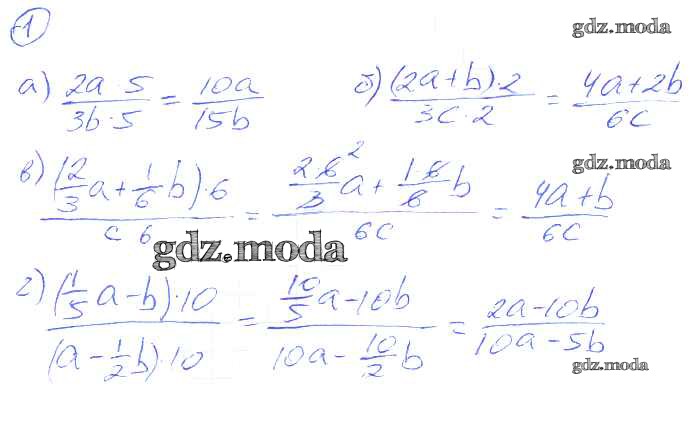 1
gdz.moda
а) (2a · 5)/(3b · 5) = 10a/15b
б) ((2a+b) · 2)/(3c · 2) = (4a+2b)/6c
gdz.moda
в) ((2/3 a + 1/6 b) · 6)/(c 6) = (2·6²/3 a + 1·6/6 b)/6c = (4a+b)/6c
gdz.moda
gdz.moda
г) ((1/5 a − b) · 10)/((a − 1/2 b) · 10) = (10/5 a − 10b)/(10a − 10/2 b) = (2a−10b)/(10a−5b)
gdz.moda